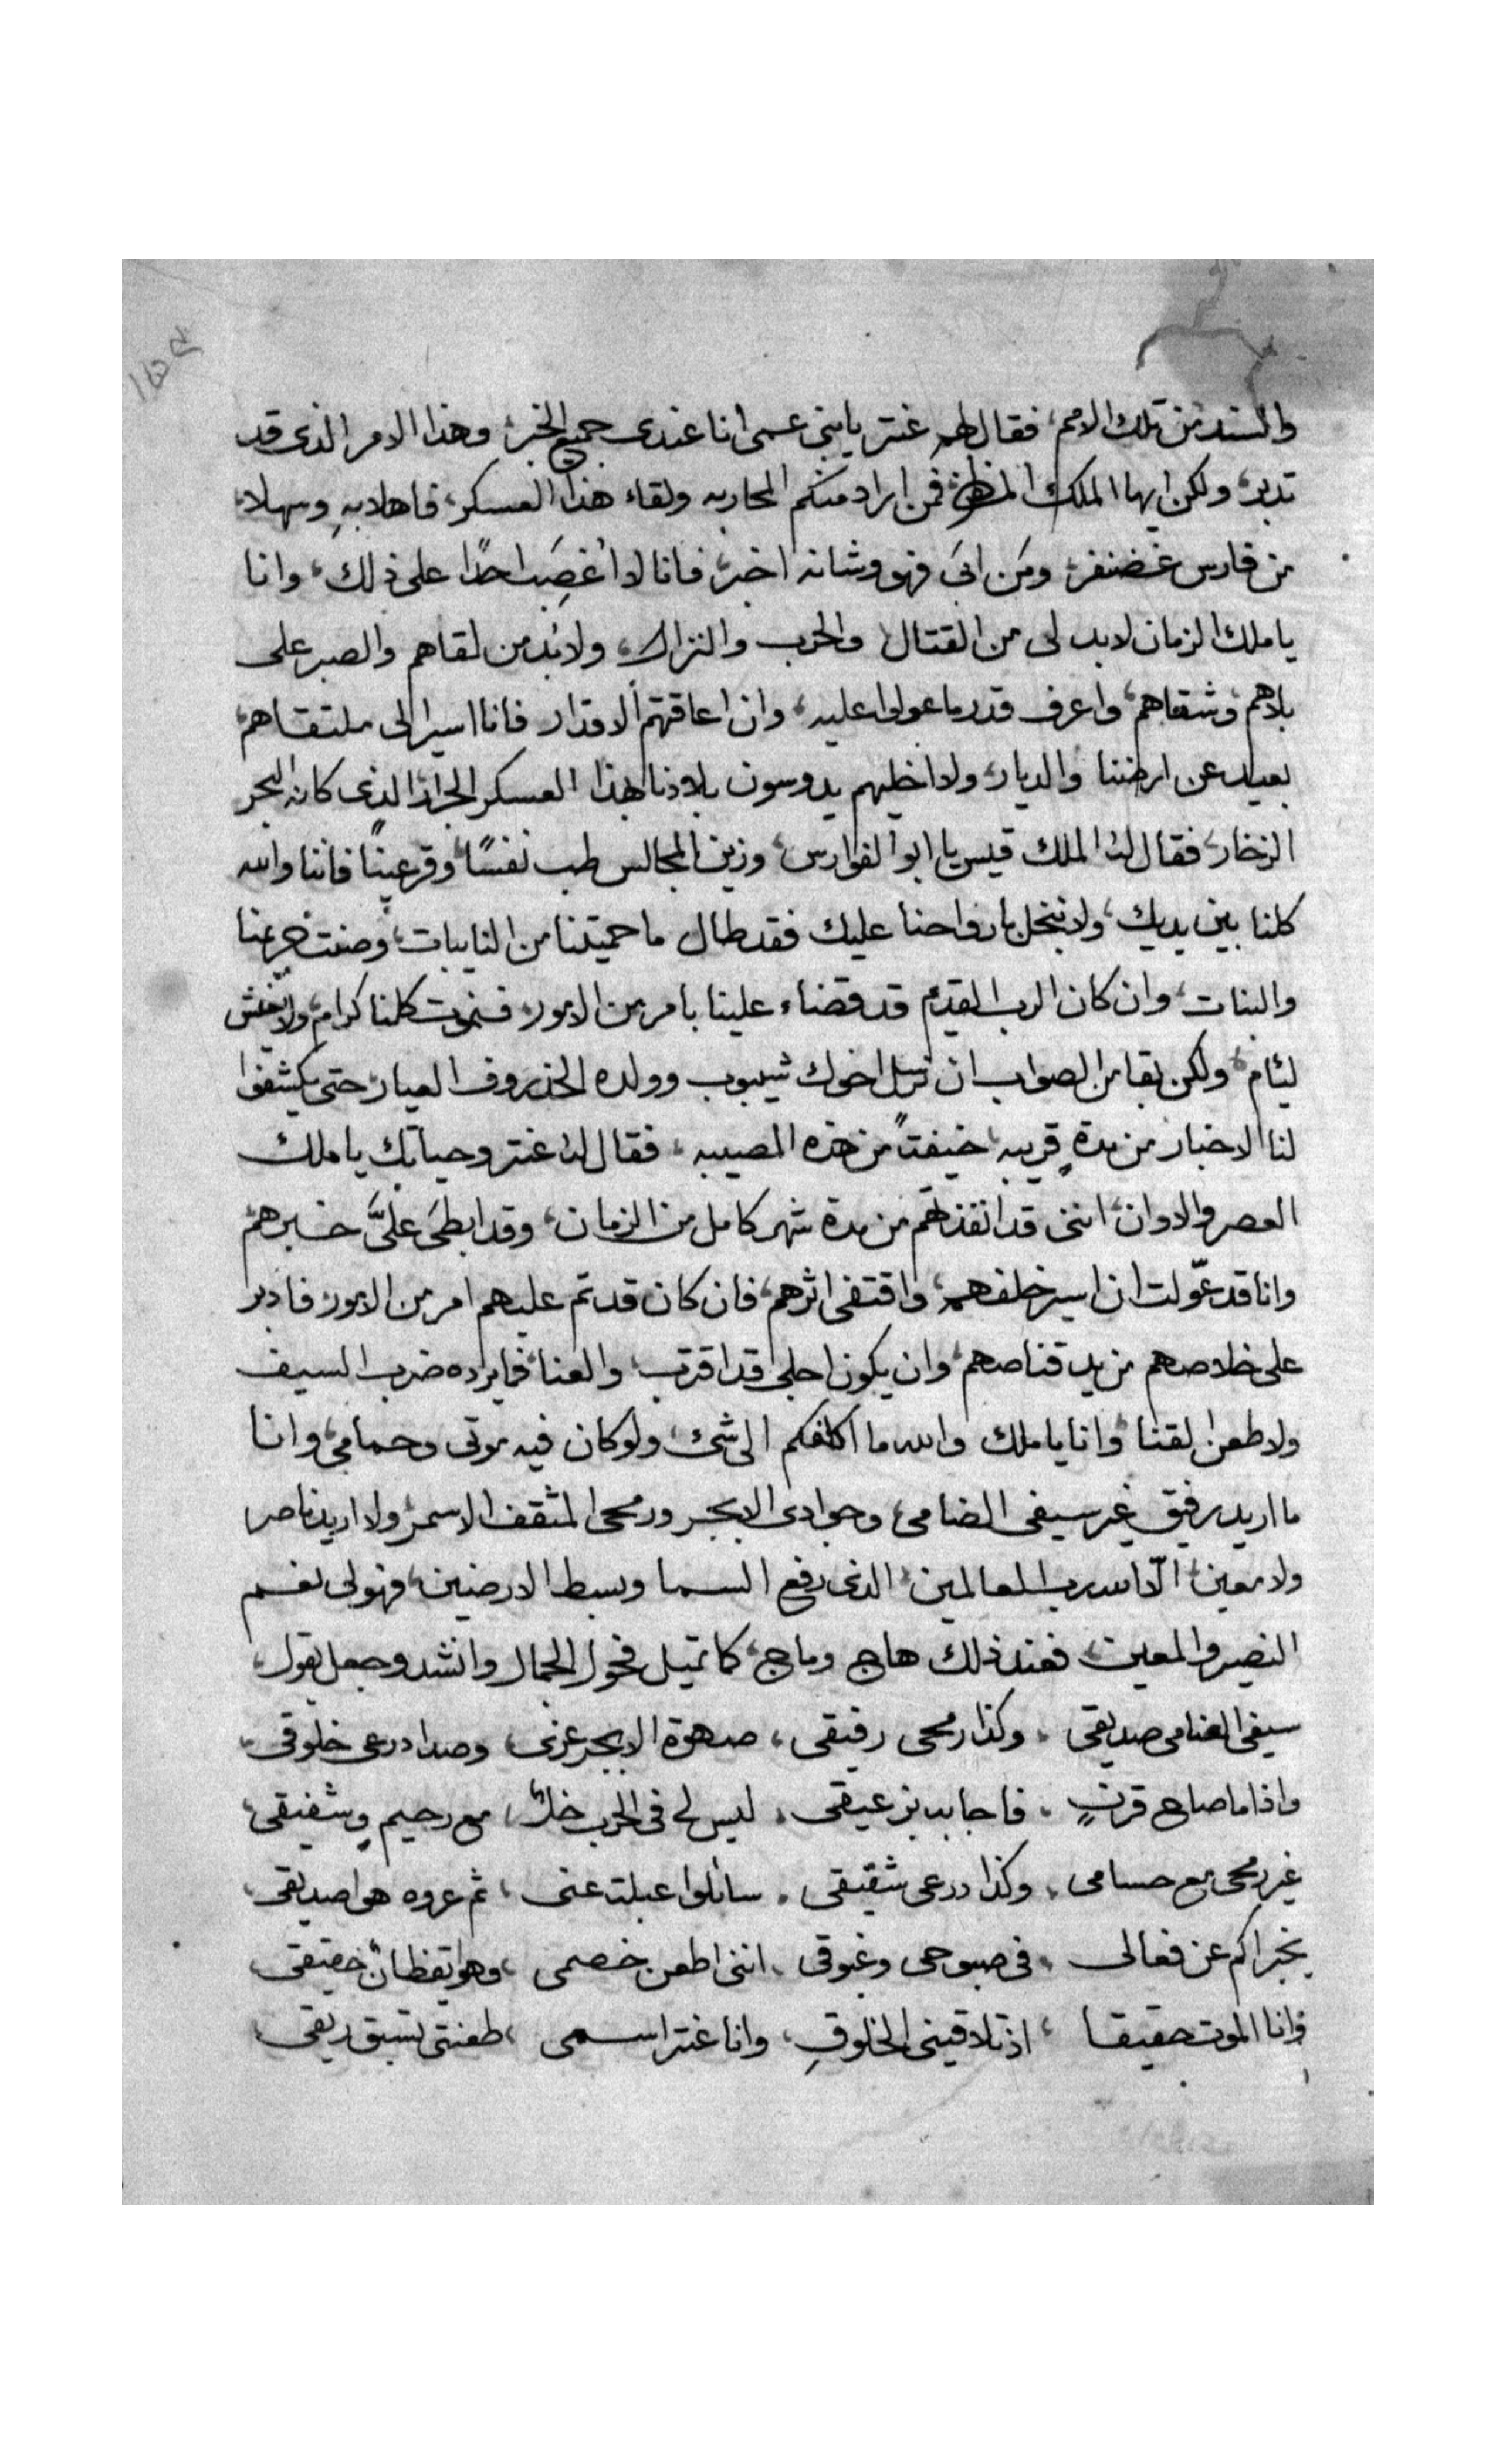 والسند من تلك الامم، فقال لهم عنتر يا بنى عمى انا عندى جميع الخبر، وهذا الامر الذى قد
تدبر، ولكن ايها الملك المظفر فمن اراد منكم المحاربه ولقاء هذا العسكر، فاهلا به وسهلا،
من فارس غضنفر، ومَن ابىَ فهو وشانه اخبر، فانا لا اغصِبَ احدًا على ذلك، وانا
يا ملك الزمان لابد لى من القتال والحرب والنزال، ولابُد من لقاهم والصبر على
بلاهم وشقاهم، واعرف قدر ما عولوا عليه، وان اعاقتهم الاقدار فانا اسير الى ملتقاهم،
بعيد عن ارضنا والديار، ولا اخليهم يدوسون بلادنا بهذا العسكر الجرار الذى كانه البحر
الزخار، فقال له الملك قيس يا ابو الفوارس، وزين المجالس طب نفسًا، وقر عينًا فاننا والله
كلنا بين يديك، ولا نبخل بارواحنا عليك فقد طال ما حميتنا من النايبات، وصنت حريمنا
والبنات، وان كان الرب القديم قد قضاء علينا بامر من الامور، فنموت كلنا كرام، ولا نعش
لئام، ولكن بقا من الصواب ان ترسل اخوك شيبوب وولده الخذروف العيار، حتى يكشفوا
لنا الاخبار من مدةٍ قريبه، خيفتاً من هذه المصيبه، فقال له عنتر وحياتك يا ملك
العصر والاوان، اننى قد انفذتهم من مدة شهر كامل من الزمان، وقد ابطىَ علىَّ خبرهم
وانا قد عوّلت ان اسير خلفهم، واقتفى اثرهم، فان كان قد تم عليهم امر من الامور، فادبر
على خلاصهم من يد قناصهم، وان يكون اجلى قد اقترب، والعنا، فما يرده ضرب السيف
ولا طعن لقنا، وانا يا ملك والله ما اكلفكم الى شئ، ولو كان فيه موتى وحمامى، وانا
ما اريد رفيق غير سيفى الضامى، وجوادى الابجر ورمحى المثقف الاسمر، ولا اريد ناصر
ولا معين، الّا الله رب العالمين، الذى رفع السما وبسط الارضين، فهو لى نعم
النصير والمعين، فعند ذلك هاج وماج، كما تميل فحول الجمال وانشد وجعل يقول،
سيفى الضامى صديقى، وكذا رمحى رفيقى، صهوة الابجر عزى، وصدا درعى خلوقى،
واذا ما صاح قرنٍ، فاجابه بزعيقى، ليس لى فى الحرب خلٌ، مع رحيمٍ وشفيقى،
غير رمحى مع حسامى، وكذا درعى شقيقى، سائلوا عبلت عنى، ثم عروه هوا صديقى،
يخبراكم عن فعالى، فى صبوحى وغبوقى، اننى اطعن خصمى، وهو يقظان حقيقى،
وانا الموت حقيقا، اذ تلاقينى الخلوقِ، وانا عنتر اسمى، طعنتى تسبق ريقى،